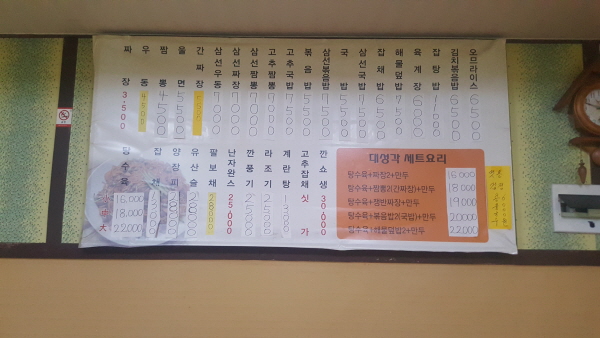 짜장 3,500
우동 4500
짬뽕
울면 5500
간짜장
삼선우동 7000
삼선짜장 7000
삼선짬뽕 7000
고추짬뽕 7000
고추국밥 7500
볶음밥
삼선볶음밥 7500
국밥
삼선국밥 7500
잡채밥 6500
해물덮밥 7500
육계장 6000
잡탕밥
김치볶음밥 6500
오므라이스 6500
탕수육
小 16,000
中 18,000
大 22,000
잡채
양장피
유산슬
팔보채
난자완스 25,000
깐풍기
라조기
계란탕
고추잡채 싯가
깐쇼새 30,000
대성각 세트요리
탕수육+짜장2+만두 16000
탕수육+짬뽕2(간짜장)+만두 18,000
탕수육+쟁반짜장+만두 19000
탕수육+볶음밥2(국밥)+만두 20000
탕수육+해물덮밥2+만두 22,000